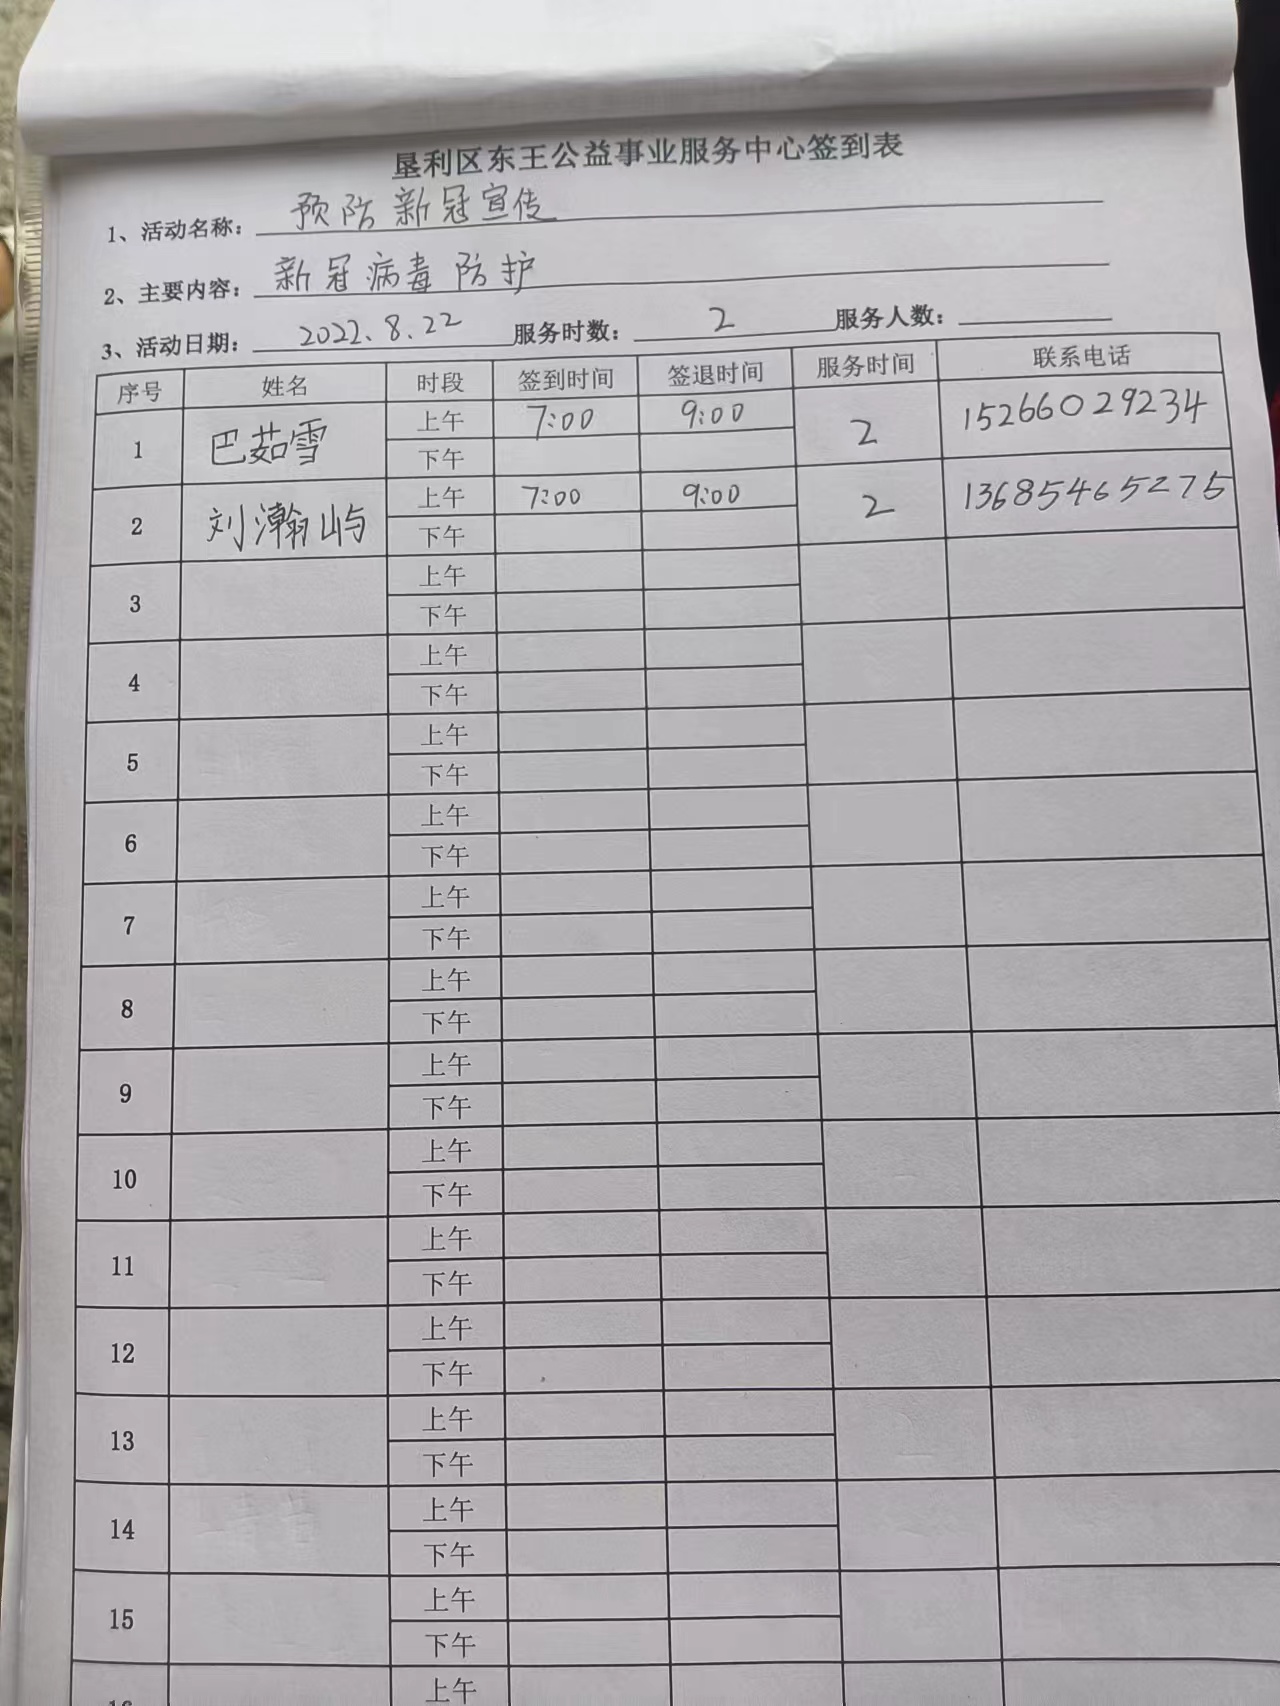 垦利区东王公益事业服务中心签到表
1、活动名称: 预防新冠宣传
2、主要内容: 新冠病毒防护
3、活动日期: 2022.8.22 服务时数: 2 服务人数:
序号 姓名 时段 签到时间 签退时间 服务时间 联系电话
1 巴茹雪 上午 7:00 9:00 2 15266029234
下午
2 刘瀚屿 上午 7:00 9:00 2 13685465275
下午
3 上午
下午
4 上午
下午
5 上午
下午
6 上午
下午
7 上午
下午
8 上午
下午
9 上午
下午
10 上午
下午
11 上午
下午
12 上午
下午
13 上午
下午
14 上午
下午
15 上午
下午
16 上午